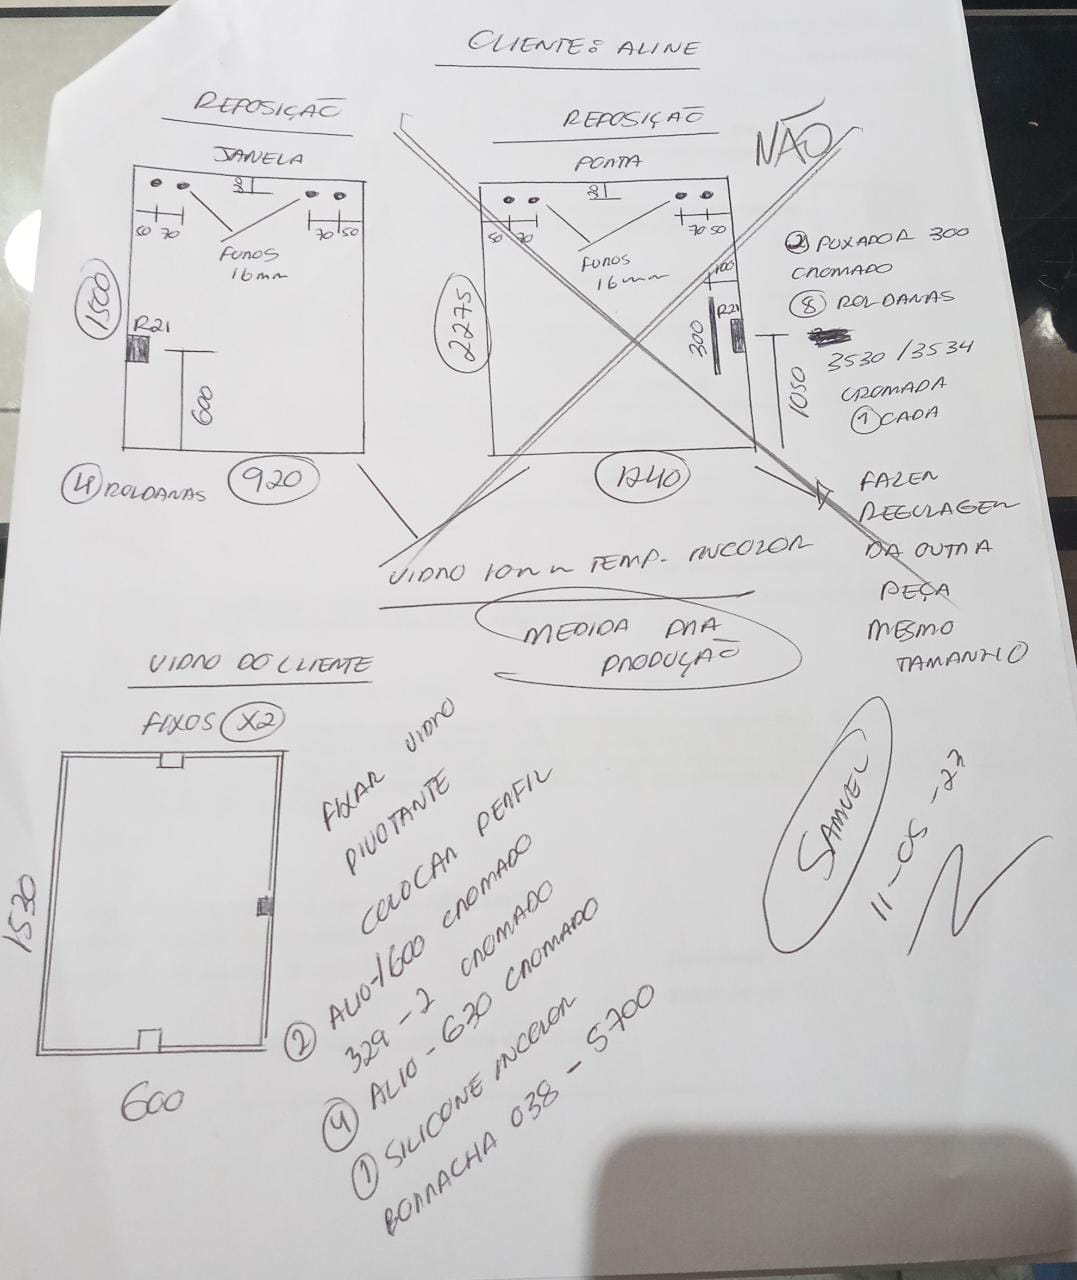 CLIENTE: ALINE
REPOSIÇÃO
JANELA
50 70
70 50
FUROS
16mm
1500
R21
600
4 ROLDANAS
920
REPOSIÇÃO
PORTA
NÃO
50 70
70 50
FUROS
16mm
100
2275
300
R21
1050
1240
2 PUXADOR 300
CROMADO
8 ROLDANAS
3530 / 3534
CROMADA
1 CADA
FAZER
REGULAGEM
DA OUTRA
PEÇA
MESMO
TAMANHO
VIDRO 10mm TEMP. INCOLOR
MEDIDA PRA
PRODUÇÃO
VIDRO DO CLIENTE
FIXOS X2
1530
600
FIXAR VIDRO
PIVOTANTE
COLOCAR PERFIL
2 AL10-1600 CROMADO
329 - 2 CROMADO
4 AL10 - 630 CROMADO
1 SILICONE INCOLOR
BORRACHA 038 - 5700
SAMUEL
11-05-23